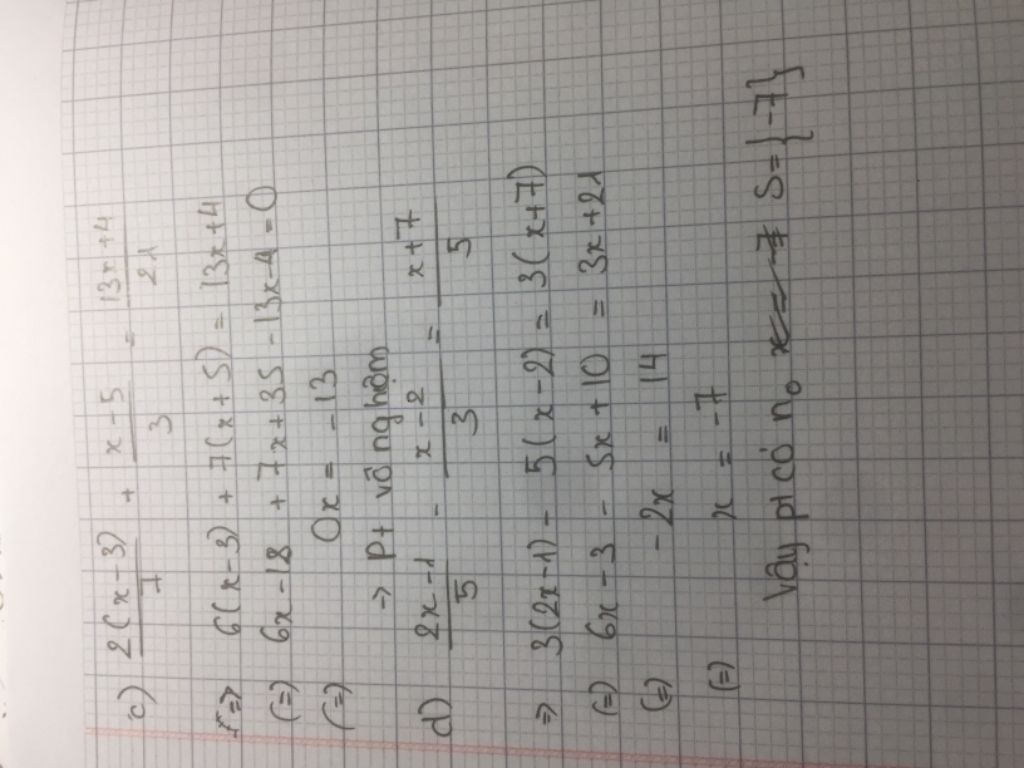 c) 2(x-3)/7 + x-5/3 = 13x+4/21
<=> 6(x-3) + 7(x+5) = 13x+4
(=) 6x-18 + 7x+35 -13x-4=0
(=) 0x = -13
-> Pt vô nghiệm
d) 2x-1/5 - x-2/3 = x+7/5
=> 3(2x-1) - 5(x-2) = 3(x+7)
(=) 6x-3 - 5x+10 = 3x+21
(=) -2x = 14
(=) x = -7
Vậy pt có no S={-7}